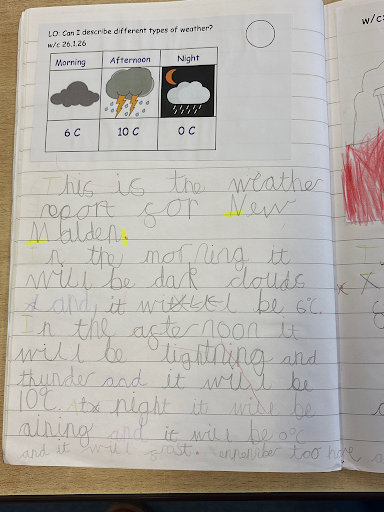 LO: Can I describe different types of weather?
w/c 26.1.26
Morning Afternoon Night
6 C 10 C 0 C
This is the weather
report for New
Malden.
in the morning it
will be dark clouds
and it will be 6°C.
In the afternoon it
will be lightning and
thunder and it will be
10°C. At night it wise be
raining and it will be 0°C
and it will frost. remember too have a
w/c